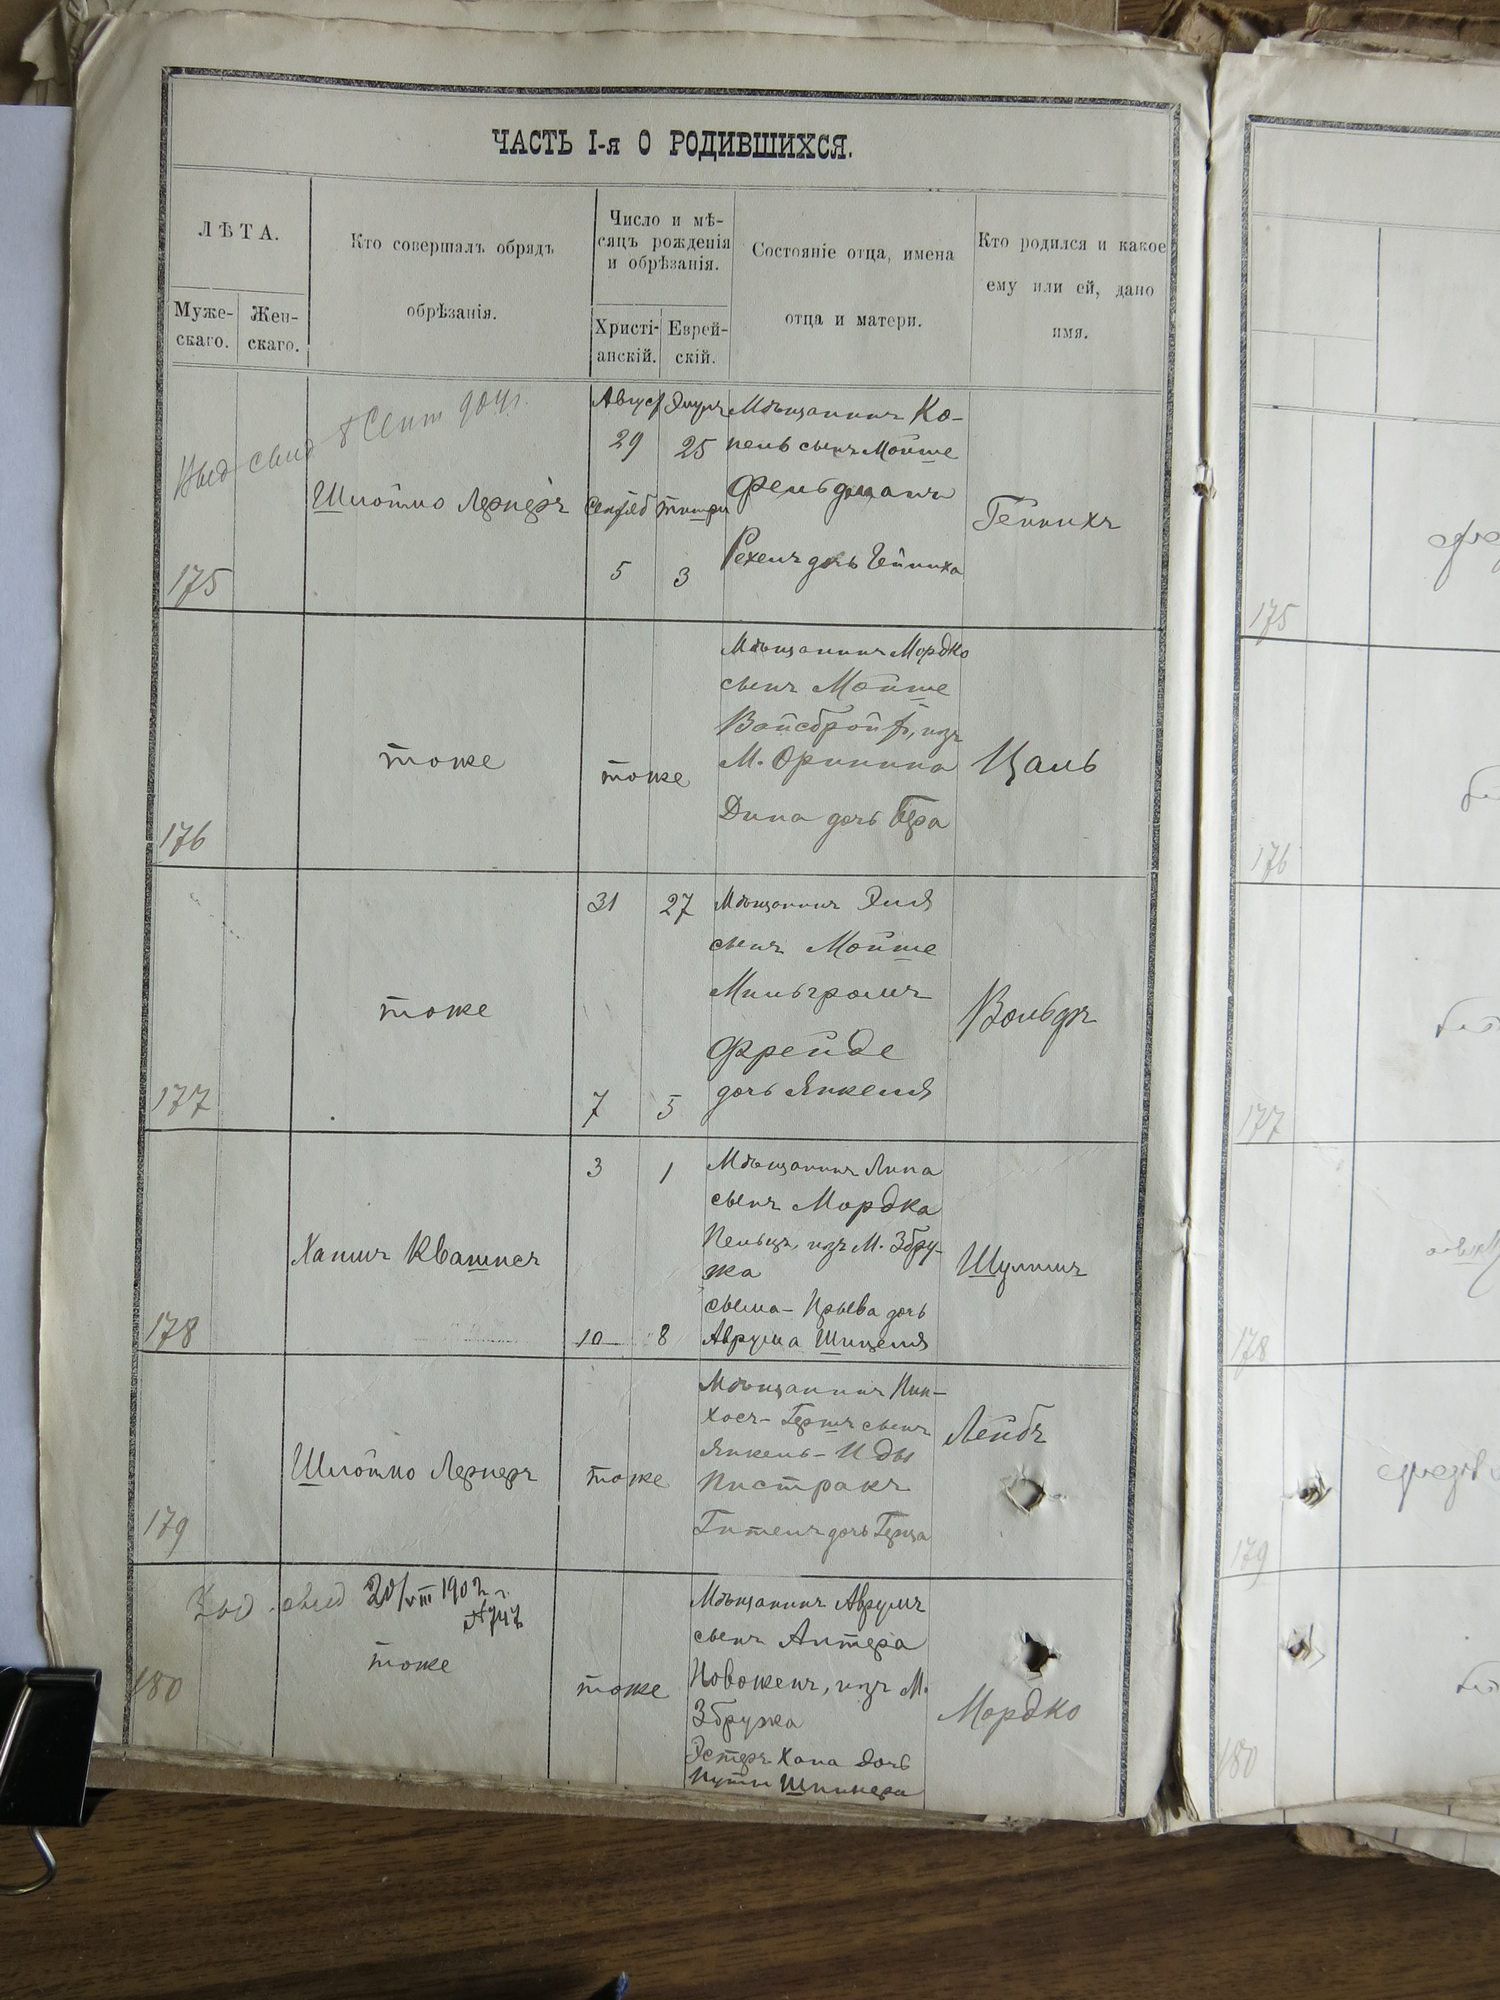 ЧАСТЬ I-я О РОДИВШИХСЯ.
ЛѢТА.
Муже-
скаго.
Жен-
скаго.
Кто совершалъ обрядъ
обрѣзанія.
Число и мѣ-
сяцъ рожденія
и обрѣзанія.
Христі-
анскій.
Еврей-
скій.
Состояніе отца, имена
отца и матери.
Кто родился и какое
ему или ей, дано
имя.
175
Выд свид 8 Сент 904 г.
Шлоймо Лернеръ
Август
29
Сентяб
5
Элулъ
25
тишри
3
Мѣщанинъ Ко-
пель сынъ Мойше
Фельдманъ
Рехель дочь Гейниха
Гейнихъ
176
тоже
тоже
Мѣщанинъ Мордко
сынъ Мойше
Вайсбройт, изъ
М. Оринина
Дина дочь Бера
Цаль
177
тоже
31
27
7
5
Мѣщанинъ Эля
сынъ Мойше
Мильгромъ
Фрейде
дочь Янкеля
Вольфъ
178
Хаимъ Квашнеъ
3
1
10
8
Мѣщанинъ Липа
сынъ Мордка
Пельцъ, изъ М. Збру-
жа
Сыма-Црыва дочь
Аврума
Шулимъ
179
Шлоймо Лернеръ
тоже
Мѣщанинъ Пин-
хосъ-Гершъ сынъ
Янкель-Иды
Пистракъ
Гитель дочь Герша
Лейбъ
180
Выд. свид 20/VIII 1902 г.
тоже
тоже
Мѣщанинъ Аврумъ
сынъ Алтера
Новоженъ, изъ М.
Збружа
Эстеръ Хана дочь
Мордко
175
176
177
178
179
180